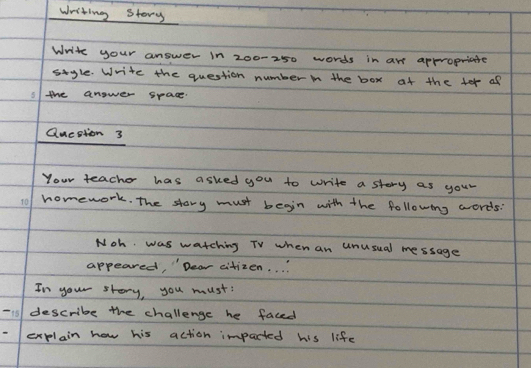 Writing Story
Write your answer in 200-250 words in an appropriate
style. Write the question number in the box at the top of
5 the answer space.
Question 3
Your teacher has asked you to write a story as your
10 homework. The story must begin with the following words:
Noh. was watching TV when an unusual message
appeared, "Dear citizen ..."
In your story, you must:
- 15 describe the challenge he faced
- explain how his action impacted his life